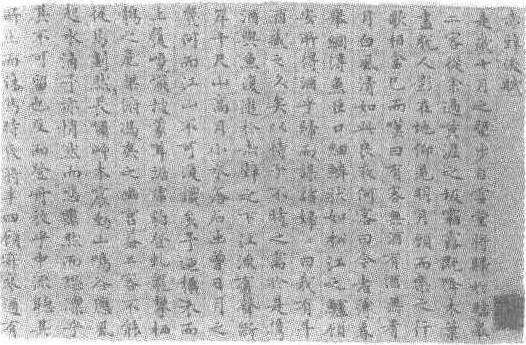 後赤壁賦
是歲十月之望步自雪堂將歸於臨皋
二客從余過黃泥之坂霜露既降木葉
盡脫人影在地仰見明月顧而樂之行
歌相答已而嘆曰有客無酒有酒無肴
月白風清如此良夜何客曰今者薄暮
舉網得魚巨口細鱗狀如松江之鱸顧
安所得酒乎歸而謀諸婦婦曰我有斗
酒藏之久矣以待子不時之需於是攜
酒與魚復遊於赤壁之下江流有聲斷
岸千尺山高月小水落石出曾日月之
幾何而江山不可復識矣予乃攝衣而
上履巉巖披蒙茸踞虎豹登虬龍攀棲
鶻之危巢俯馮夷之幽宮蓋二客不能
從焉劃然長嘯草木震動山鳴谷應風
起水涌予亦悄然而悲肅然而恐凜乎
其不可留也反而登舟放乎中流聽其
所止而休焉時夜將半四顧寂寥適有